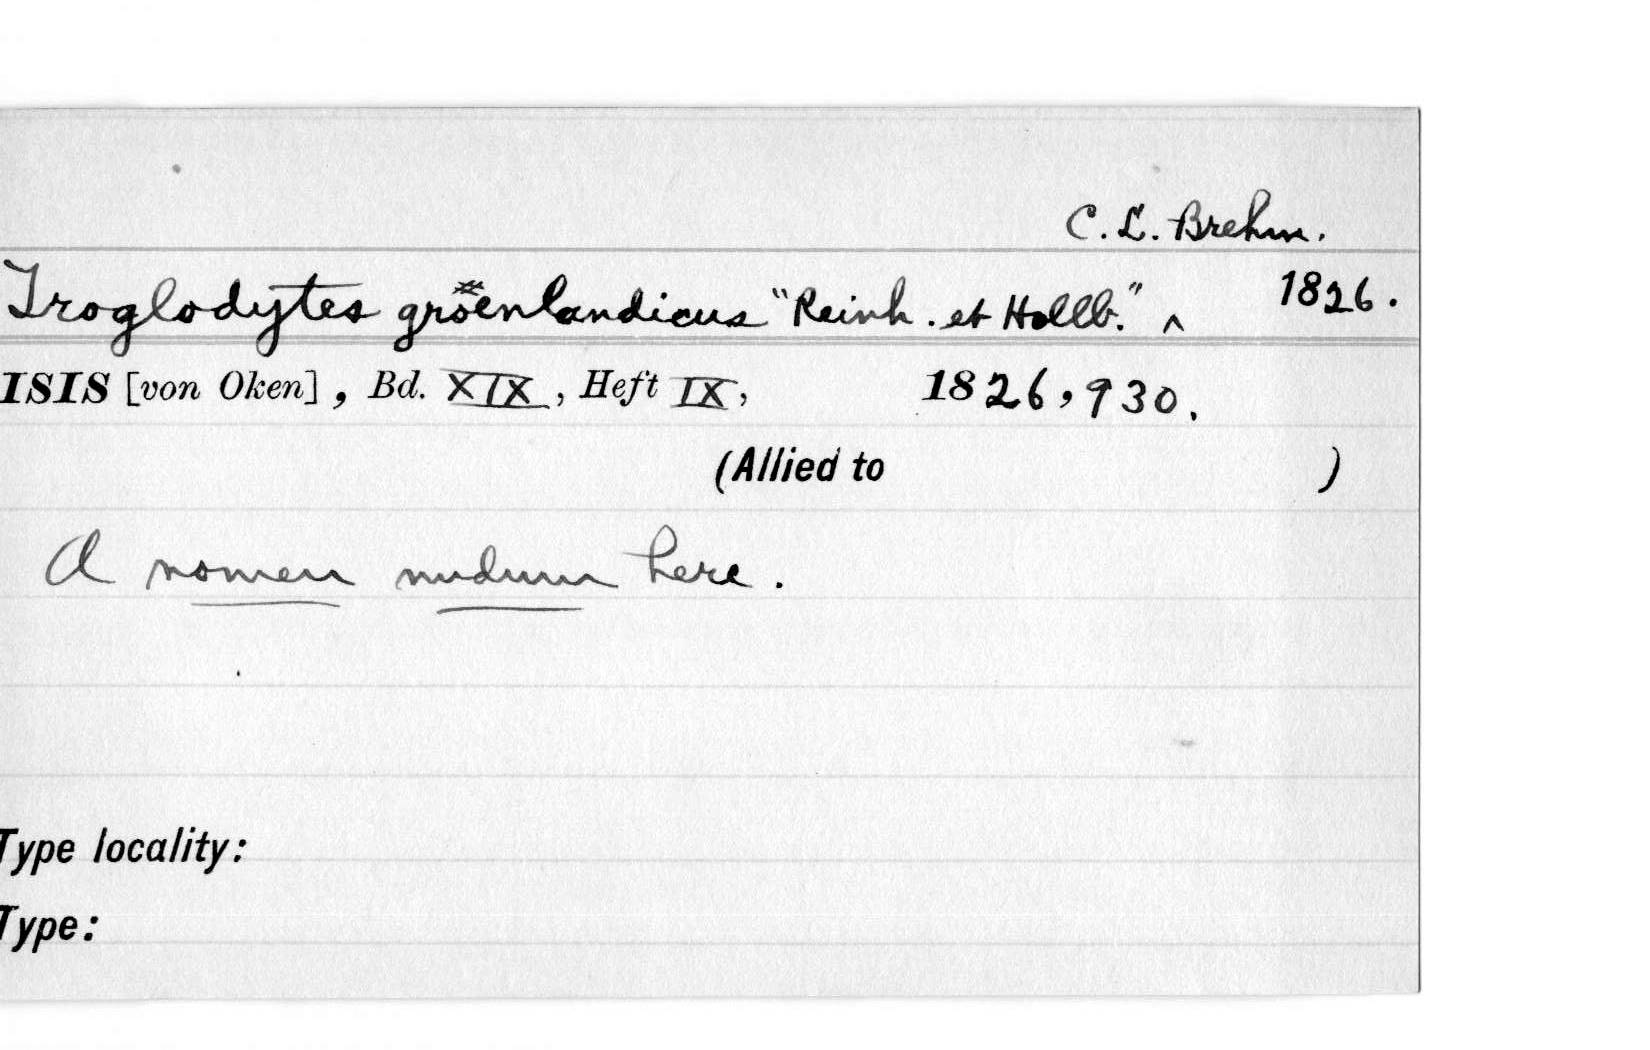 C. L. Brehm.
Troglodytes gröenlandicus "Reinh. et Hollb." ^ 1826.
ISIS [von Oken], Bd. XIX, Heft IX, 1826, 930.
(Allied to )
A nomen nudum here.
Type locality:
Type: